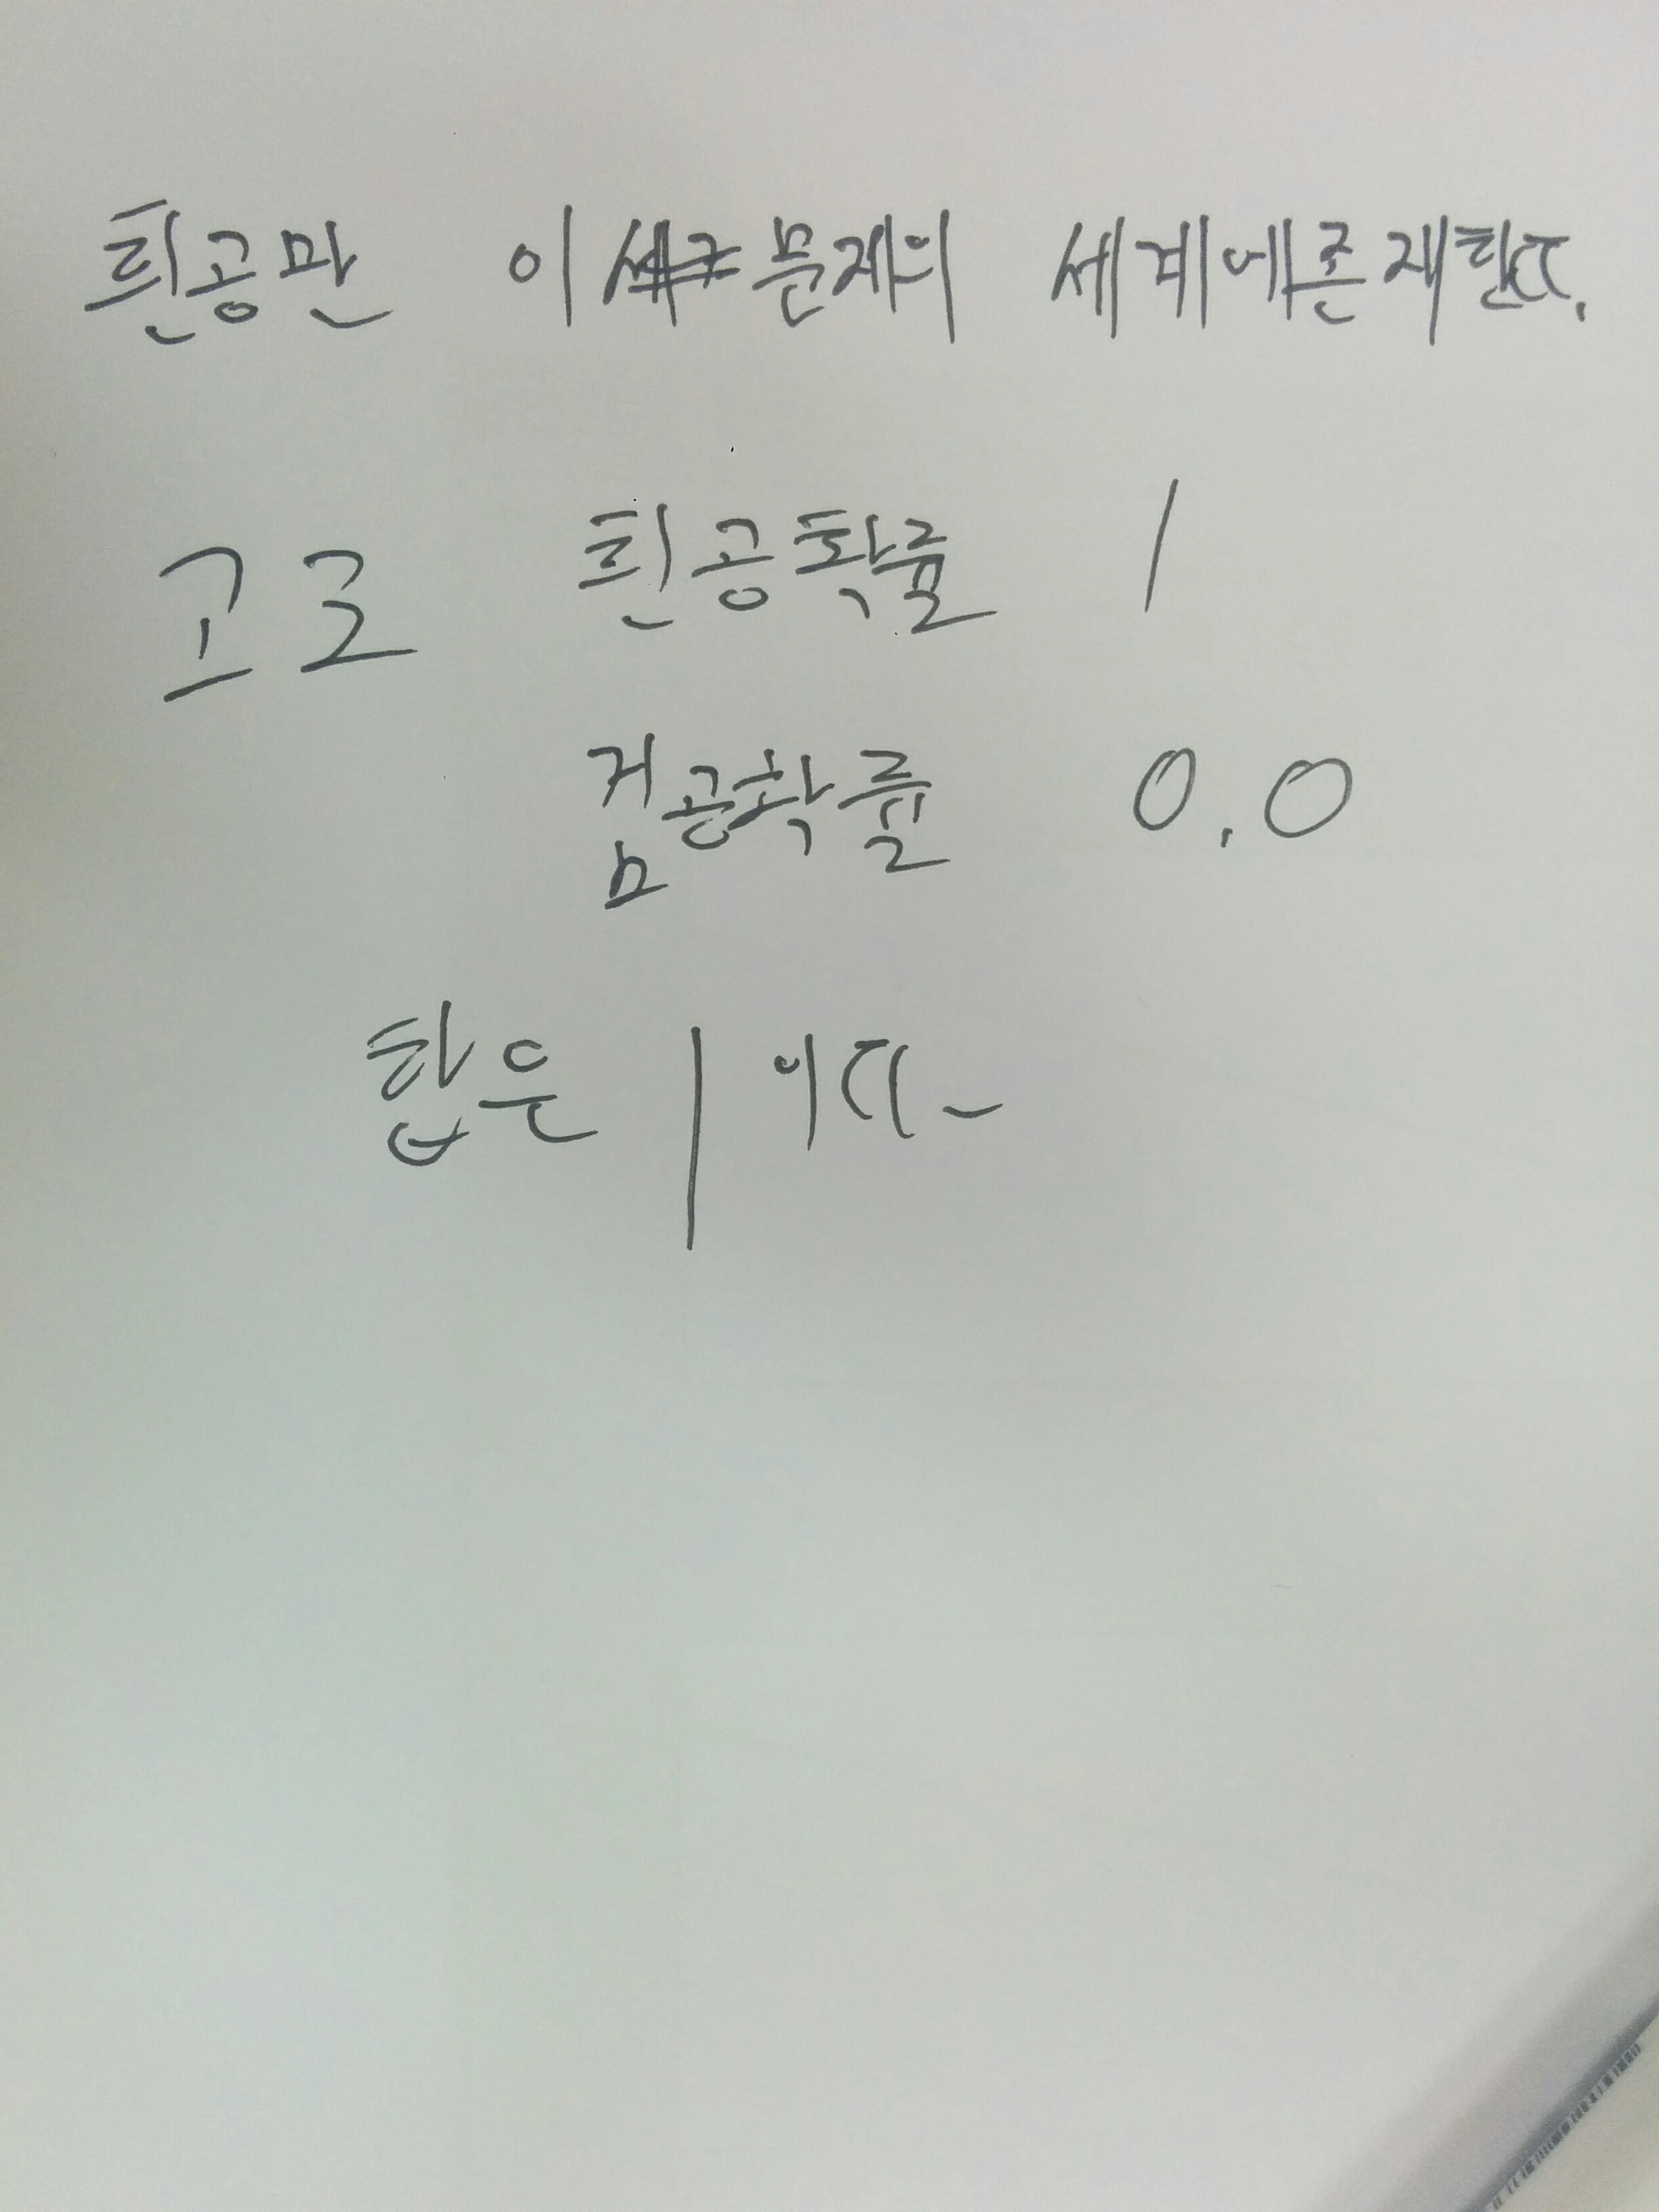 흰공만 이 문제의 세계에존재한다.
고로 흰공확률 1
검공확률 0.0
합은 1 이다